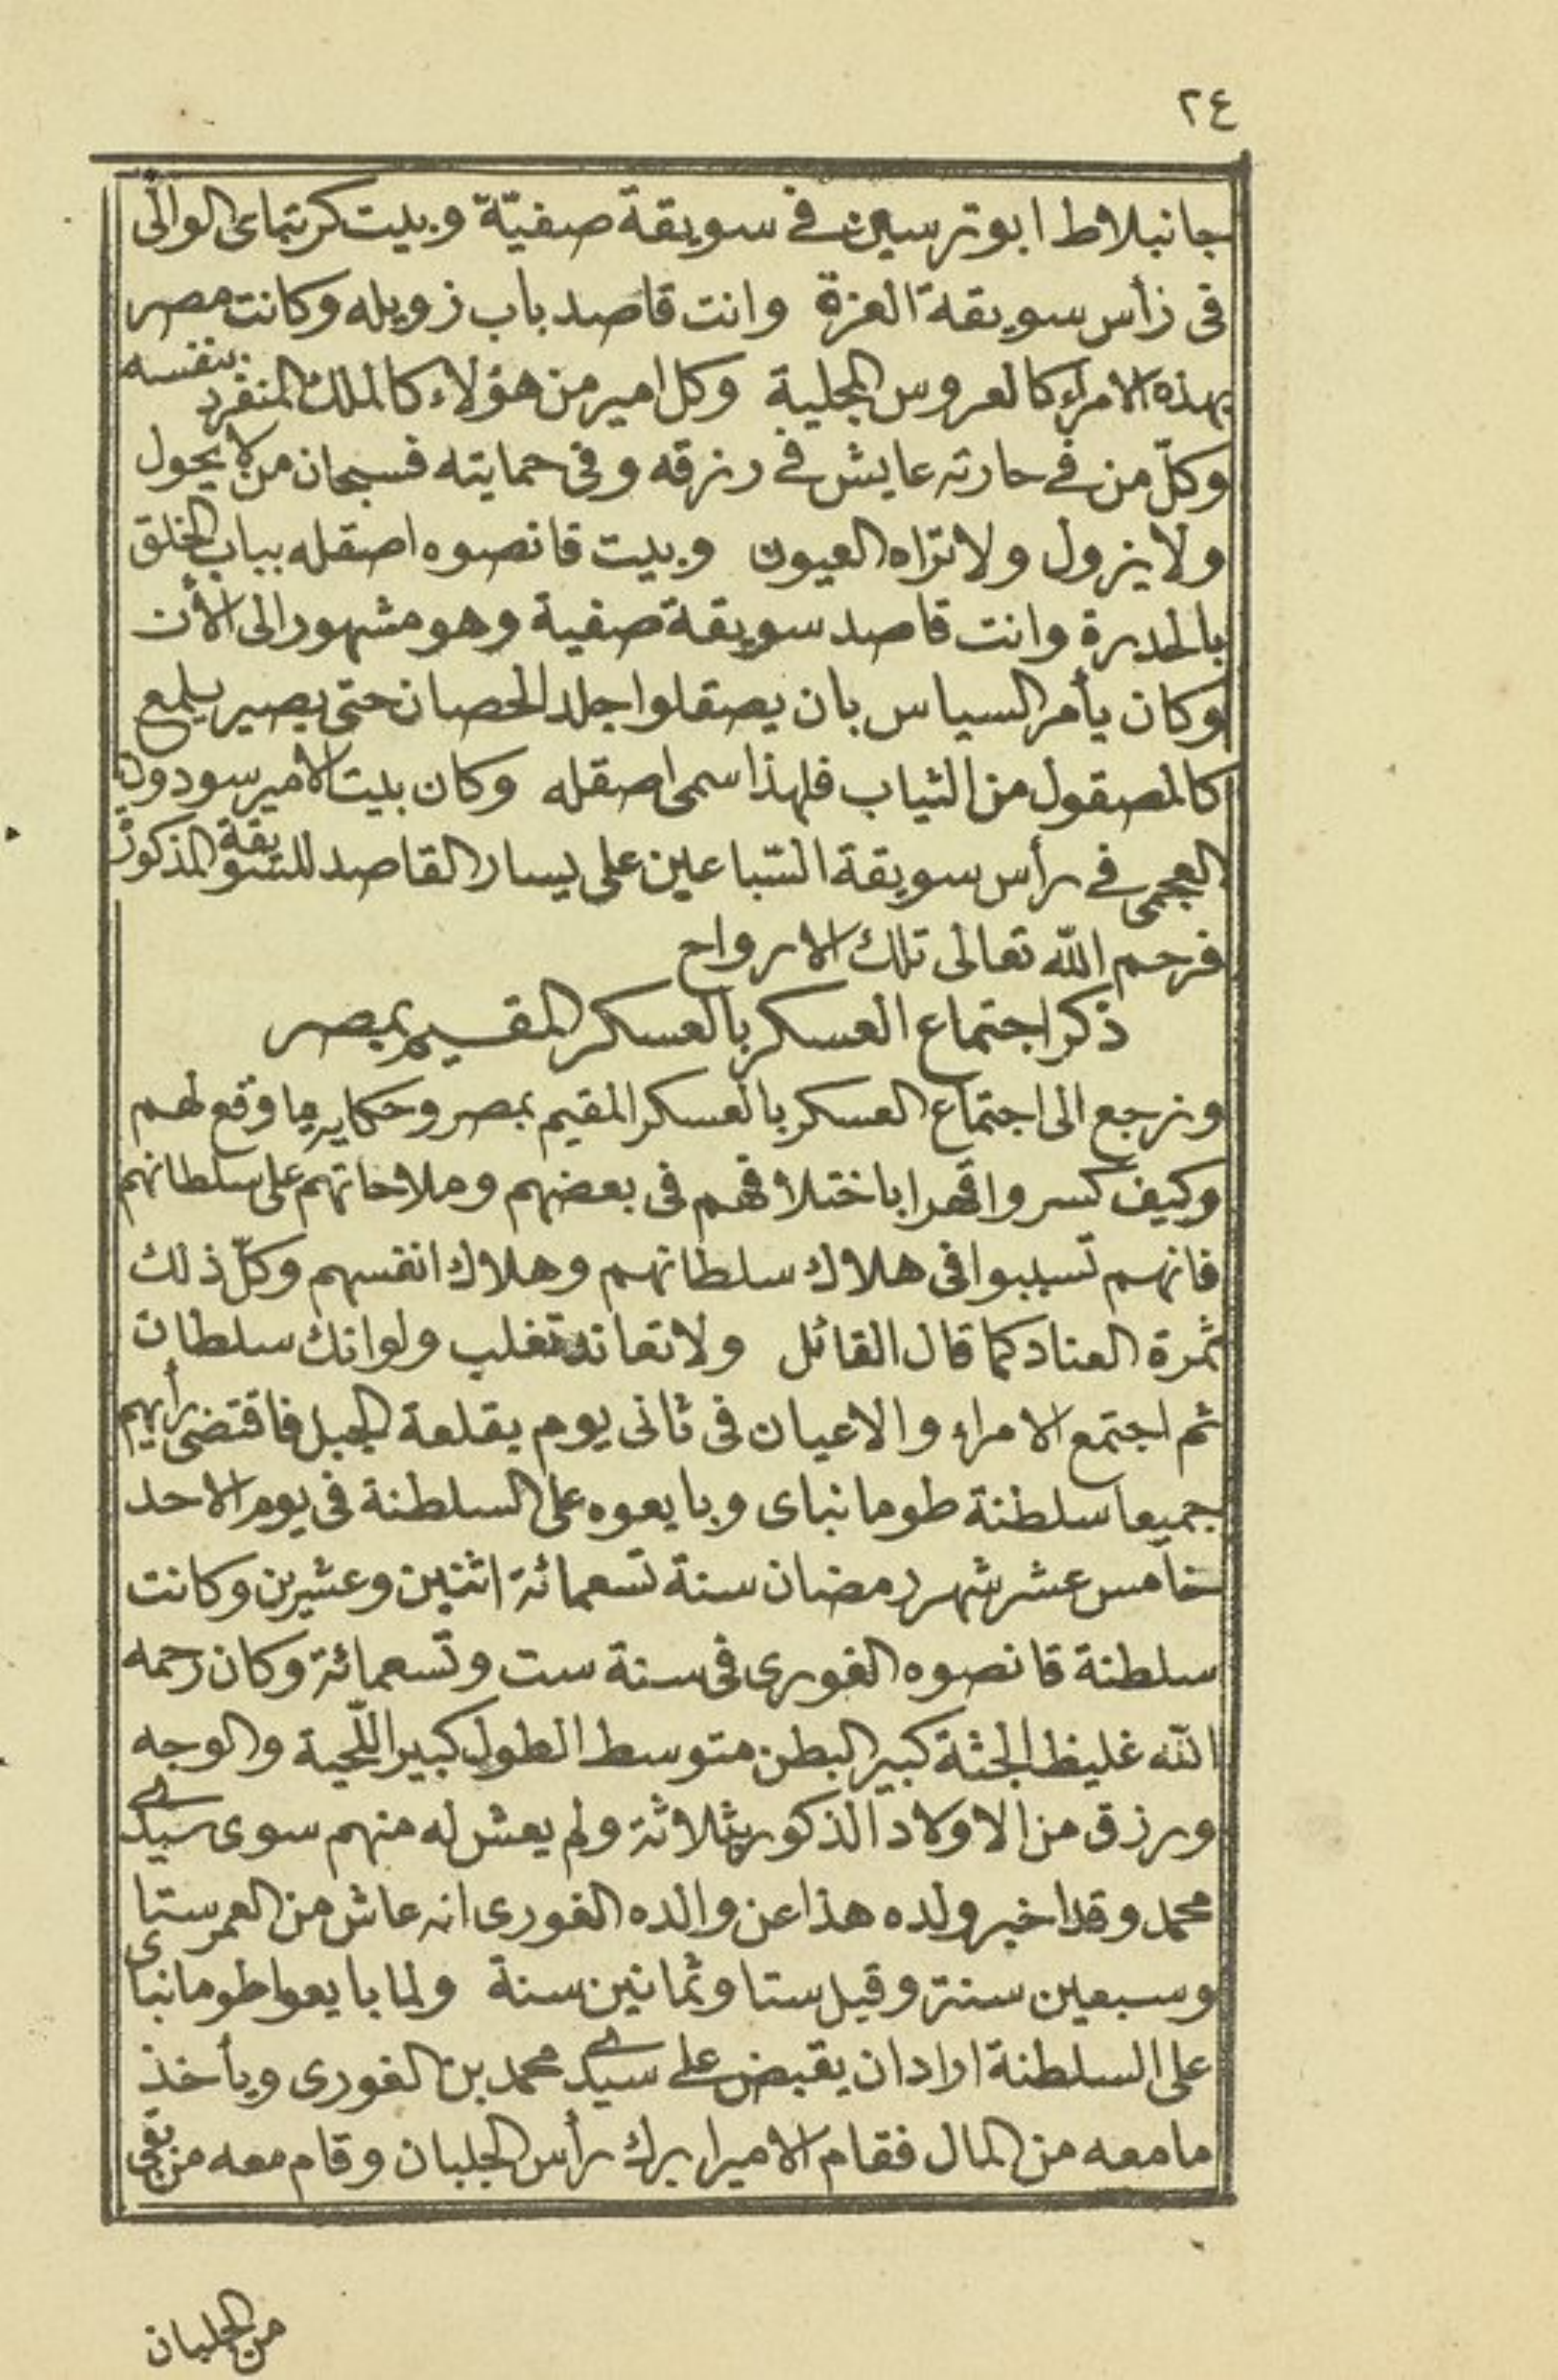 ٢٤
جانبلاط ابو ترسين في سويقة صفيّة وبيت كرتباى الوالى
فى رأس سويقة العزة وانت قاصد باب زويله وكانت مصر
بهذه الامراء كالعروس المجلية وكل امير من هؤلاء كالملك المنفرد بنفسه
وكلّ من في حارته عايش في رزقه وفى حمايته فسبحان من لا يحول
ولا يزول ولا تراه العيون وبيت قانصوه اصقله بباب الخلق
بالحدرة وانت قاصد سويقة صفية وهو مشهور الى الأن
وكان يأمر السياس بان يصقلوا جلد الحصان حتى يصير يلمع
كالمصقول من الثياب فلهذا سمى اصقله وكان بيت الامير سودون
العجمى في رأس سويقة السّباعين على يسار القاصد للسويقة المذكور
فرحم الله تعالى تلك الارواح
ذكر اجتماع العسكر بالعسكر المقيم بمصر
ونرجع الى اجتماع العسكر بالعسكر المقيم بمصر وحكاية ما وقع لهم
وكيف كسروا قهرا باختلافهم فى بعضهم وملاحاتهم على سلطانهم
فانهم تسببوا فى هلاك سلطانهم وهلاك انفسهم وكلّ ذلك
ثمرة العناد كما قال القائل ولا تعاند تغلب ولو انك سلطان
ثم اجتمع الامراء والاعيان فى ثانى يوم بقلعة الجبل فاقتضى رأيهم
جميعا سلطنة طومانباى وبايعوه على السلطنة فى يوم الاحد
خامس عشر شهر رمضان سنة تسعمائة اثنين وعشرين وكانت
سلطنة قانصوه الغورى فى سنة ست وتسعمائة وكان رحمه
الله غليظ الجثة كبير البطن متوسط الطول كبير اللّحية والوجه
ورزق من الاولاد الذكور بثلاثة ولم يعش له منهم سوى سيدى
محمد وقد اخبر ولده هذا عن والده الغورى انه عاش من العمر ستا
وسبعين سنة وقيل ستا وثمانين سنة ولما بايعوا طومانباى
على السلطنة اراد ان يقبض على سيدى محمد بن الغورى ويأخذ
ما معه من المال فقام الامير ابرك رأس الجلبان وقام معه من بقى
من الجلبان